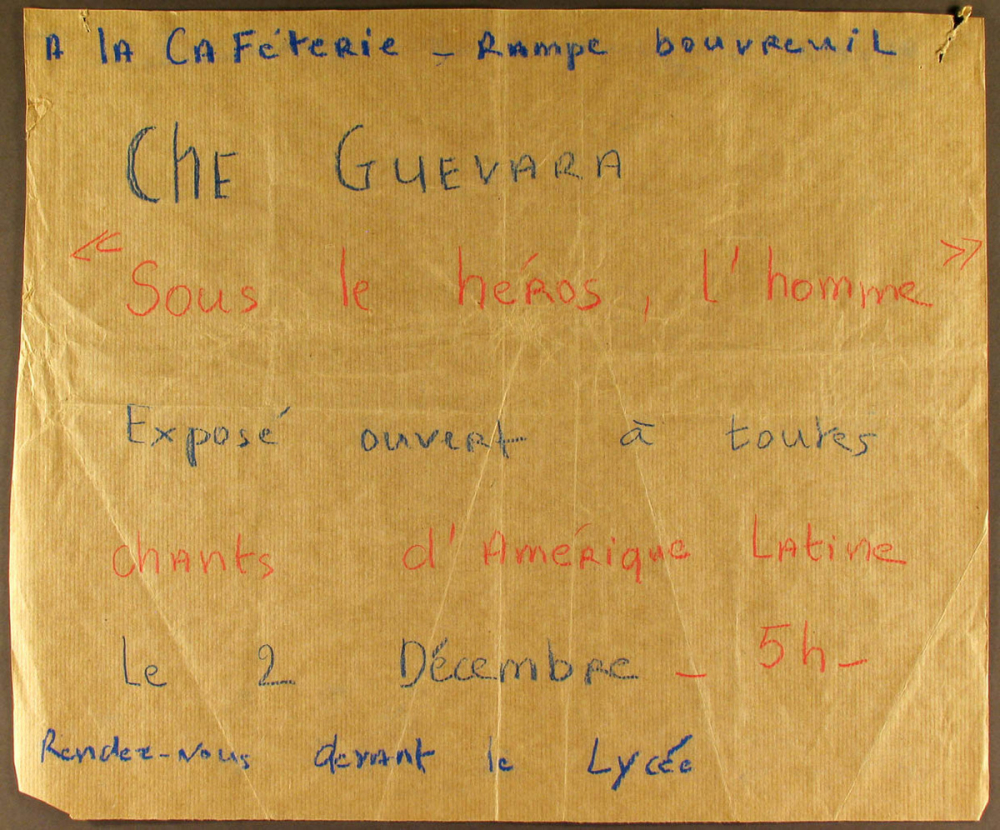 A la Caféterie - Rampe bouvreuil
Che Guevara
« Sous le héros, l'homme »
Exposé ouvert à toutes
chants d'Amérique Latine
Le 2 Décembre - 5h -
Rendez-Nous devant le Lycée